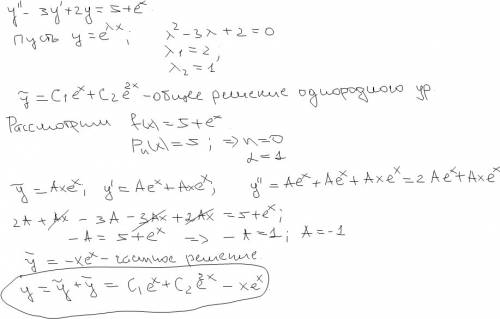 y'' - 3y' + 2y = 5 + e^x
Пусть y = e^{λx}; λ² - 3λ + 2 = 0
λ₁ = 2,
λ₂ = 1
ỹ = C₁e^x + C₂e^{2x} - общее решение однородного ур
Рассмотрим f(x) = 5 + e^x
Pₙ(x) = 5; => n = 0
α = 1
ȳ = Axe^x, y' = Ae^x + Axe^x, y'' = Ae^x + Ae^x + Axe^x = 2Ae^x + Axe^x
2A + Ax - 3A - 3Ax + 2Ax = 5 + e^x;
-A = 5 + e^x => -A = 1; A = -1
ȳ = -xe^x - частное решение
y = ỹ + ȳ = C₁e^x + C₂e^{2x} - xe^x